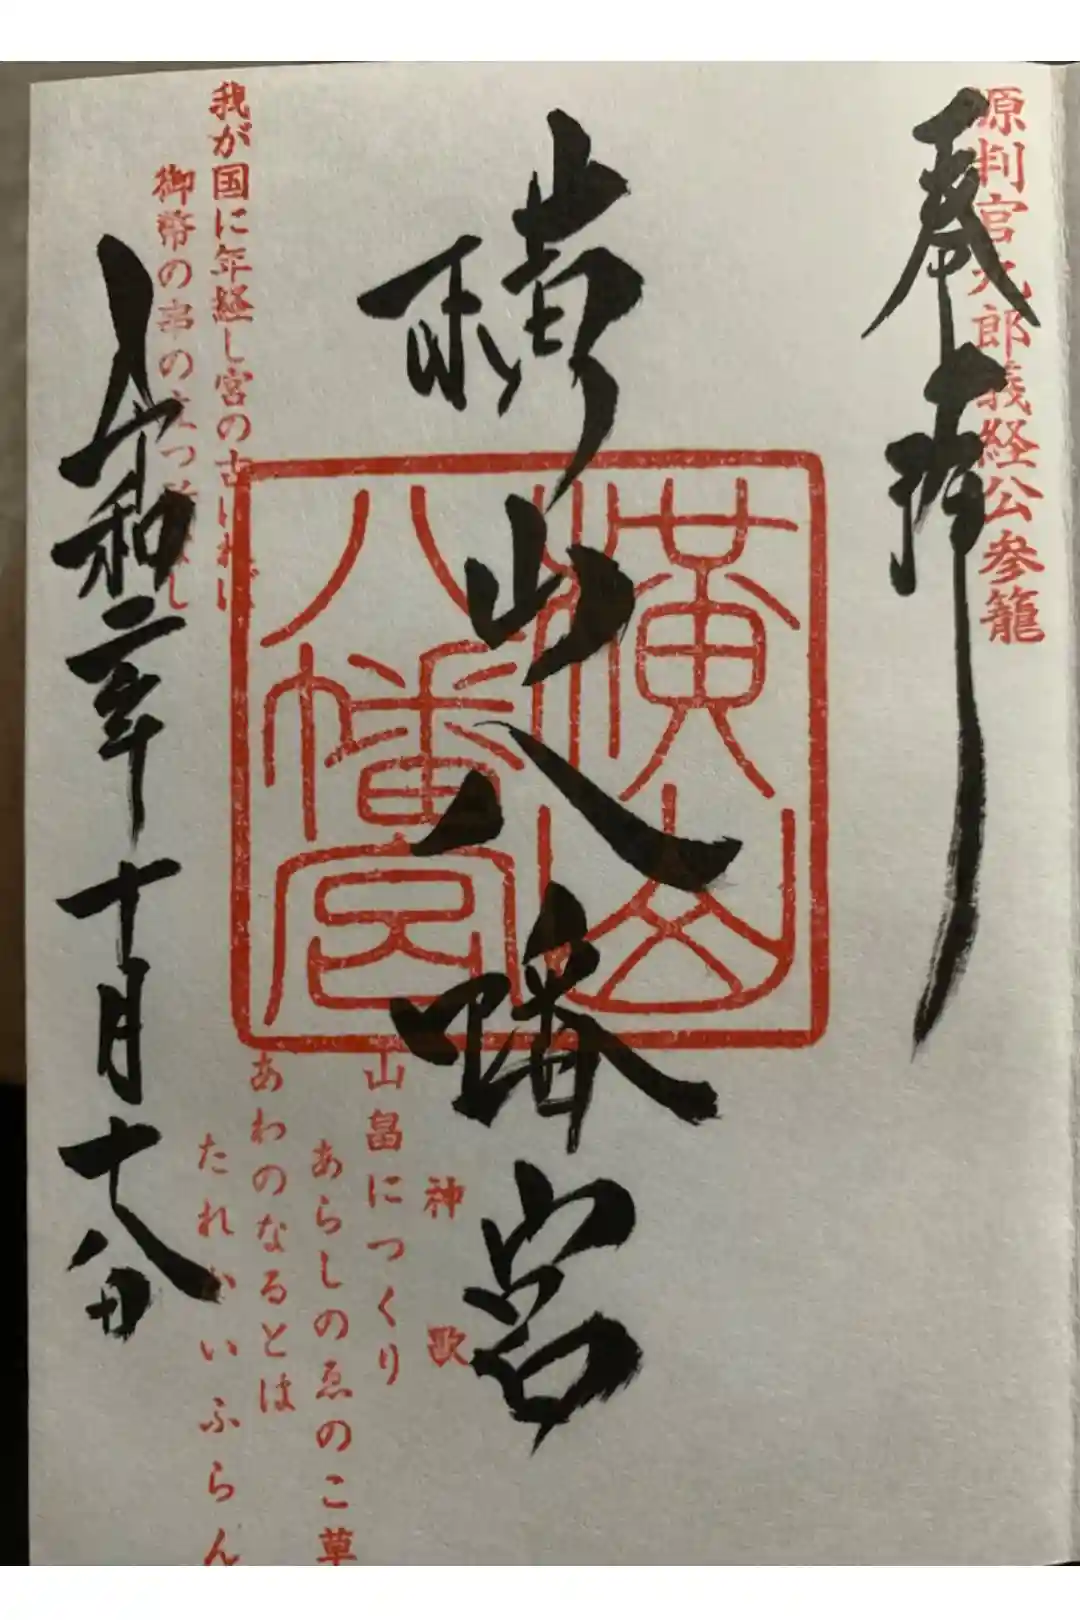 源判官九郎義経公参籠
奉拝
横山八幡宮
横山
八幡宮
神歌
山畠につくり
あらしのゑのこ草
あわのなるとは
たれかいふらん
我が国に年経し宮の古ければ
御幣の串の立つ
令和二年十月十八日